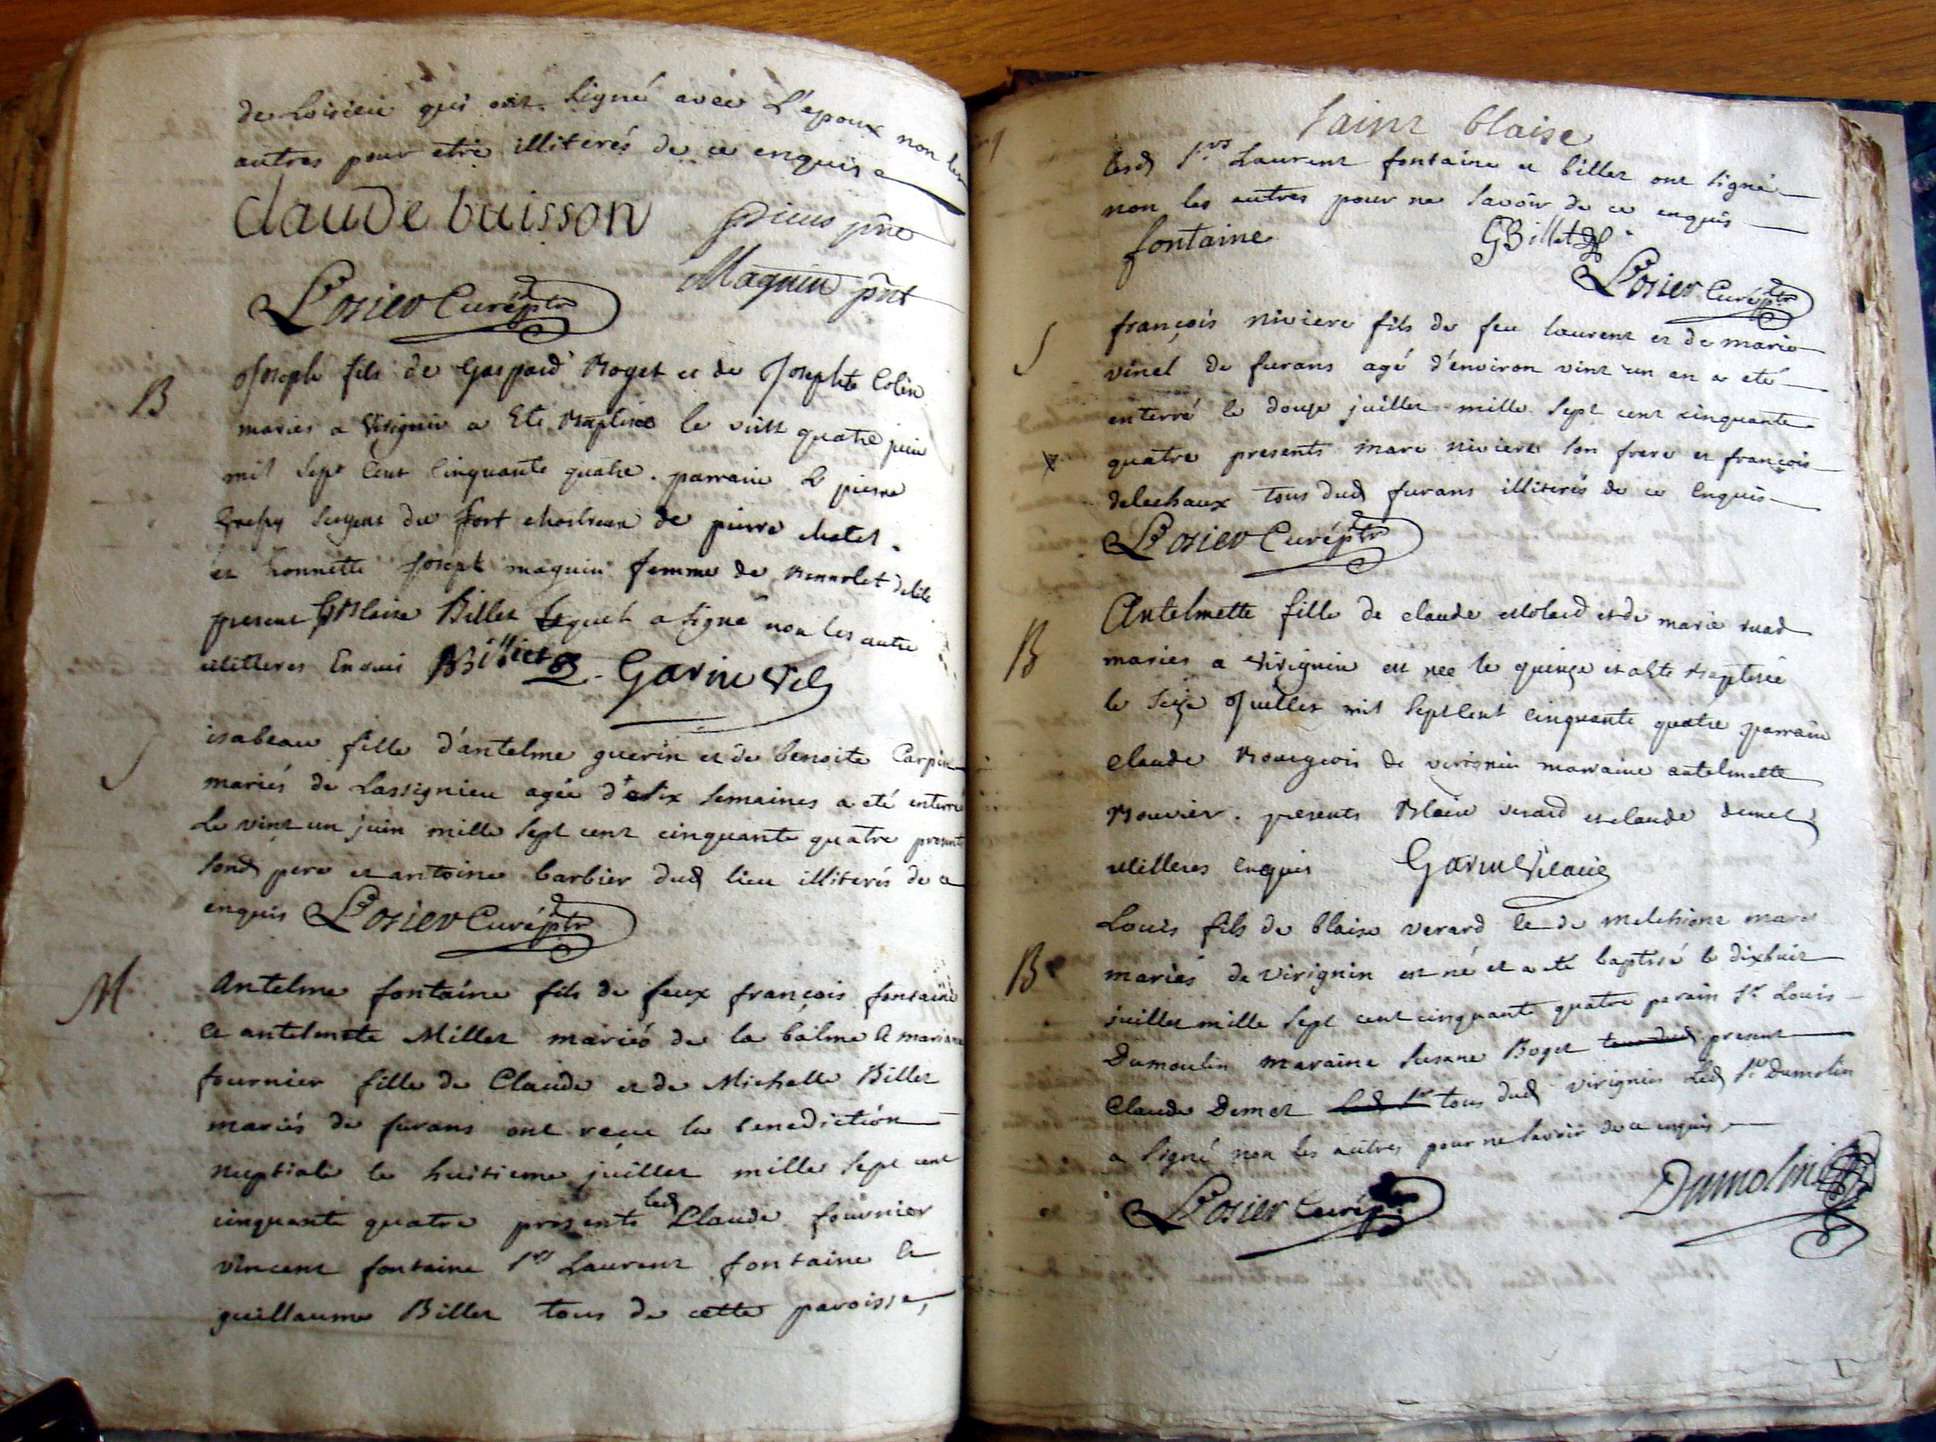 de Loisieu qui ont signé avec L'epoux non les
autres pour etre illiterés de ce enquise
claude buisson
pnt
Maguin pnt
L'Osier Curé
B
Joseph fils de Gaspard Roget et de Josephte Colin
maries a Virignin a Eté Baptisé le vint quatre juin
mil sept Cent Cinquante quatre . parrain Sr pierre
sergent du fort de pierre chatel .
et honnette Joseph maguin femme de
present Blaise Billet lequel a signé non les autre
illiteres Enquis BBilliet Garin Vic
S
isabeau fille d'antelme guerin et de benoite Carpin
mariés de Lassignieu agée d'six semaines a eté enterré
Le vint un juin mille sept cent cinquante quatre present
sond pere et antoine barbier dud lieu illiterés de ce
enquis L'Osier Curé
M
Antelme fontaine fils de feux françois fontaine
et antelmete Millet mariés de la balme et mariane
fournier fille de Claude et de Michelle Billet
mariés de furans ont reçu la benediction
nuptiale le huitieme juillet mille sept cent
cinquante quatre presents led Claude fournier
vincent fontaine srs Laurent fontaine et
guillaume Billet tous de cette paroisse,
saint blaise
lesd srs Laurent fontaine et billet ont signé
non les autres pour ne savoir de ce enquis
fontaine GBillet
L'Osier Curé
S
françois niviere fils de feu laurent et de marie
vinel de furans agé d'environ vint un an a eté
enterré le douze juillet mille sept cent cinquante
quatre presents marc niviere son frere et françois
delechaux tous dud furans illiterés de ce enquis
L'Osier Curé
B
Antelmette fille de claude Molard et de marie ruad
maries a Virignin est nee le quinze et a Ete Baptisée
le seize Juillet mil sept Cent cinquante quatre parrain
claude Bourgeois de virignin marraine antelmette
Bouvier . presents Blaise verard et claude demet
illiteres enquis Garin Vicaire
B
Louis fils de blaise verard et de melchione marc
mariés de virignin est né et a eté baptisé le dixhuit
juillet mille sept cent cinquante quatre parain Sr Louis
Dumoulin maraine susane Boget tous dud present
Claude Demet led Sr tous dud virignin Led Sr Dumolin
a signé non les autres pour ne savoir de ce enquis
L'Osier Curé Dumolin